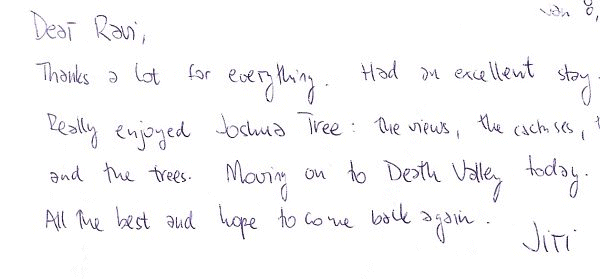 Jan 8,
Dear Ravi,
Thanks a lot for everything. Had an excellent stay.
Really enjoyed Joshua Tree: the views, the cactuses,
and the trees. Moving on to Death Valley today.
All the best and hope to come back again.
Jiri